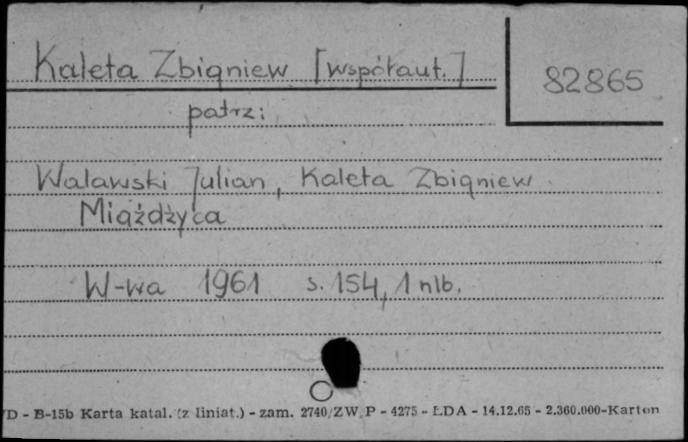 Kaleta Zbigniew [współaut.]
82865
patrz:
Walawski Julian, Kaleta Zbigniew
Miażdżyca
W-wa 1961 s. 154, 1 nlb.
D - B-15b Karta katal. (z liniat.) - zam. 2740/ZW. P - 4275 - LDA - 14.12.65 - 2.360.000-Karton